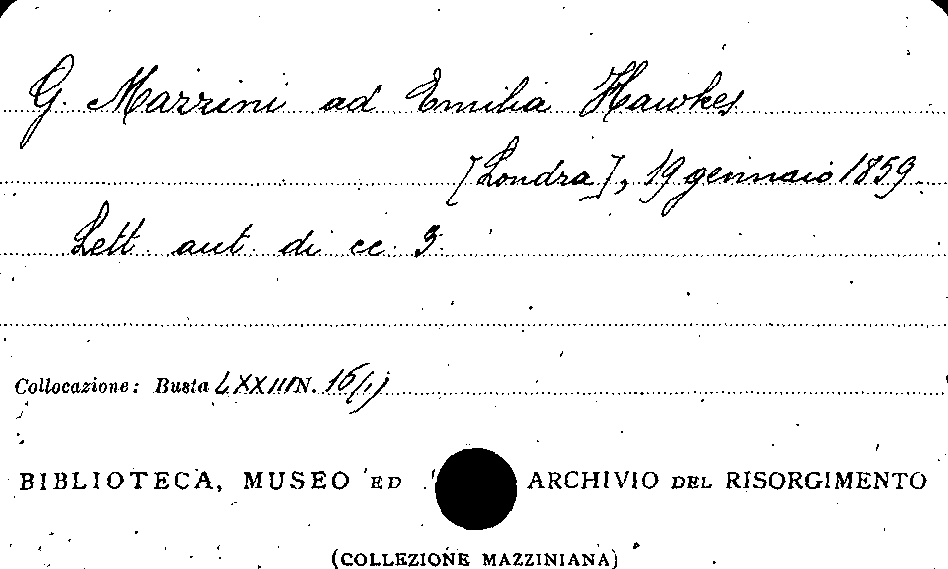 G. Mazzini ad Emilia Hawkes
[Londra], 19 gennaio 1859.
Lett. aut. di cc. 3.
Collocazione: Busta LXXIII N. 16/1)
BIBLIOTECA, MUSEO ED ARCHIVIO DEL RISORGIMENTO
(COLLEZIONE MAZZINIANA)